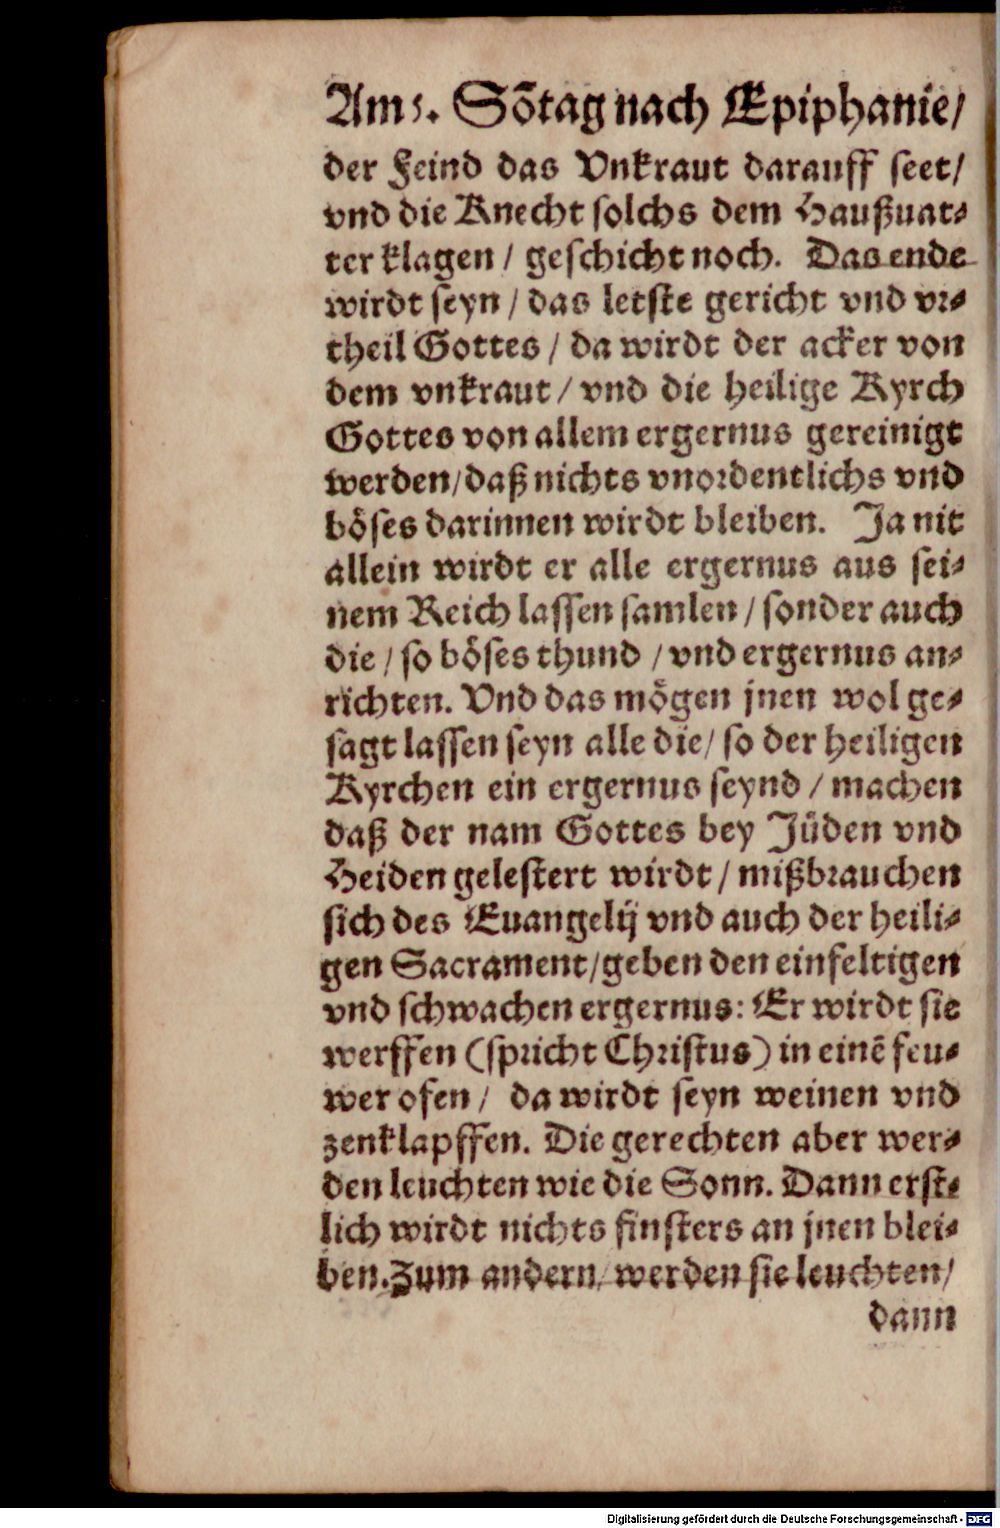 Am 5. Sõtag nach Epiphanie/
der Feind das Vnkraut darauff seet/
vnd die Knecht solchs dem Haußuat⸗
ter klagen / geschicht noch. Das ende
wirdt seyn / das letste gericht vnd vr⸗
theil Gottes / da wirdt der acker von
dem vnkraut / vnd die heilige Kyrch
Gottes von allem ergernus gereinigt
werden/daß nichts vnordentlichs vnd
böses darinnen wirdt bleiben. Ja nit
allein wirdt er alle ergernus aus sei⸗
nem Reich lassen samlen / sonder auch
die / so böses thund / vnd ergernus an⸗
richten. Vnd das mögen jnen wol ge⸗
sagt lassen seyn alle die/ so der heiligen
Kyrchen ein ergernus seynd / machen
daß der nam Gottes bey Jüden vnd
Heiden gelestert wirdt / mißbrauchen
sich des Euangelij vnd auch der heili⸗
gen Sacrament/geben den einfeltigen
vnd schwachen ergernus: Er wirdt sie
werffen (spricht Christus) in einẽ feu⸗
wer ofen / da wirdt seyn weinen vnd
zenklapffen. Die gerechten aber wer⸗
den leuchten wie die Sonn. Dann erst⸗
lich wirdt nichts finsters an jnen blei⸗
ben. Zum andern/ werden sie leuchten/
dann
Digitalisierung gefördert durch die Deutsche Forschungsgemeinschaft - DFG